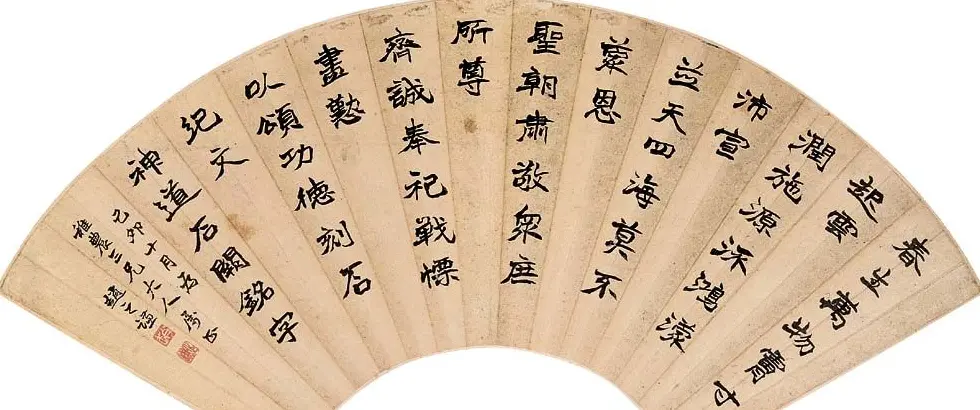 春生萬物膚寸
起雲
潤施源流鴻濛
沛宣
並天四海莫不
蒙恩
聖朝肅敬眾庶
所尊
齊誠奉祀戰慄
盡懃
以頌功德刻石
紀文
神道石闕銘字
己卯十月為
雅農三兄大人屬書
趙之謙